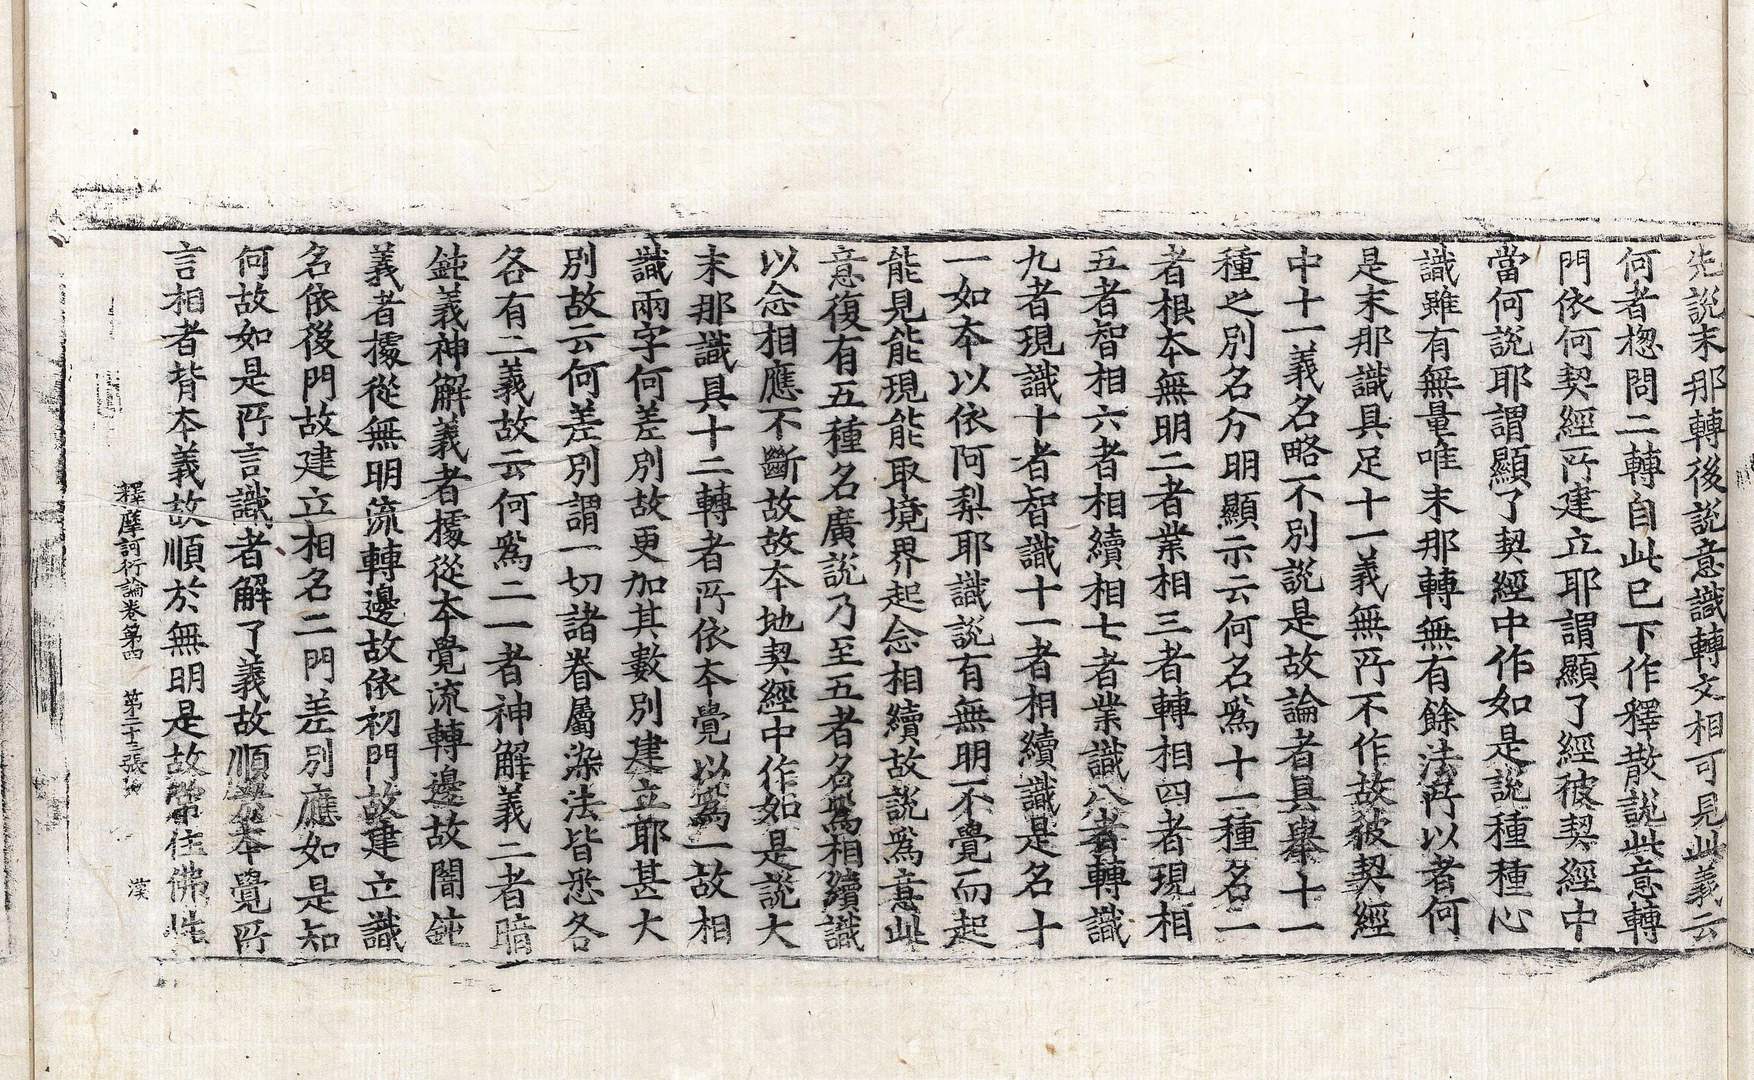 先說末那轉後說意識轉文相可見此義云
何者揔問二轉自此已下作釋散說此意轉
門依何契經所建立耶謂顯了經彼契經中
當何說耶謂顯了契經中作如是說種種心
識雖有無量唯末那轉無有餘法所以者何
是末那識具足十一義無所不作故彼契經
中十一義名略不別說是故論者具舉十一
種之別名分明顯示云何名爲十一種名一
者根本無明二者業相三者轉相四者現相
五者智相六者相續相七者業識八者轉識
九者現識十者智識十一者相續識是名十
一如本以依阿梨耶識說有無明不覺而起
能見能現能取境界起念相續故說爲意此
意復有五種名廣說乃至五者名爲相續識
以念相應不斷故故本地契經中作如是說大
末那識具十二轉者所依本覺以爲一故相
識兩字何差別故更加其數別建立耶甚大
別故云何差別謂一切諸眷屬染法皆悉各
各有二義故云何爲二一者神解義二者暗
鈍義神解義者據從本覺流轉邊故闇鈍
義者據從無明流轉邊故依初門故建立識
名依後門故建立相名二門差別應如是知
何故如是所言識者解了義故順於本覺所
言相者背本義故順於無明是故常住佛性
釋摩訶衍論卷第四　第二十三張　漢